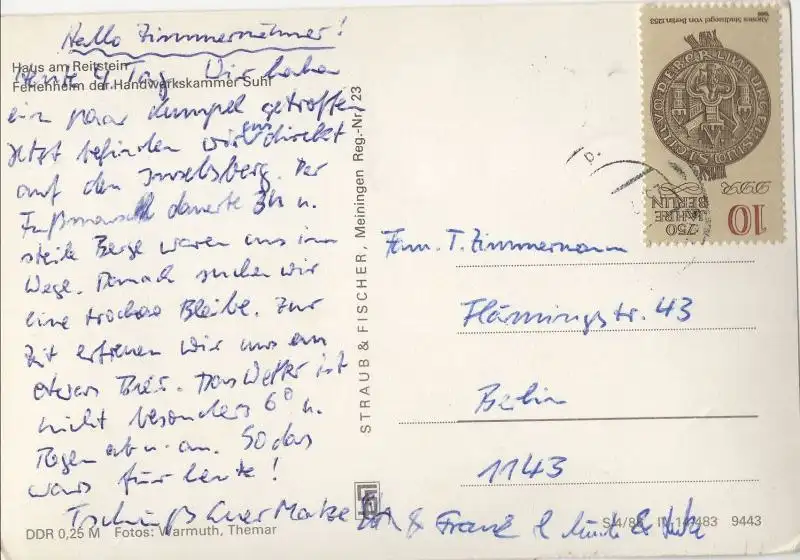 Hallo Zimmermänner!
Haus am Reitstein
Ferienheim der Handwerkskammer Suhl
Heute 4 Tag. Wir haben
ein paar Kumpel getroffen
Jetzt befinden wir uns direkt
auf den Inselsberg. Der
Fußmarsch dauerte 3h u.
steile Berge waren uns im
Wege. Danach suchen wir
eine trockne Bleibe. Zur
Zeit erfreuen wir uns an
etwas Bier. Das Wetter ist
nicht besonders 6° u.
Regen ab u. an. So das
wars für heute!
Tschüß Euer Matze & Frank &
DDR 0,25 M Fotos: Warmuth, Themar
STRAUB & FISCHER, Meiningen Reg.-Nr. 23
S 4/86 9443
Ältestes Stadtsiegel von Berlin 1253
DDR
750
JAHRE
BERLIN
10
Fam. T. Zimmermann
Flämingstr. 43
Berlin
1143